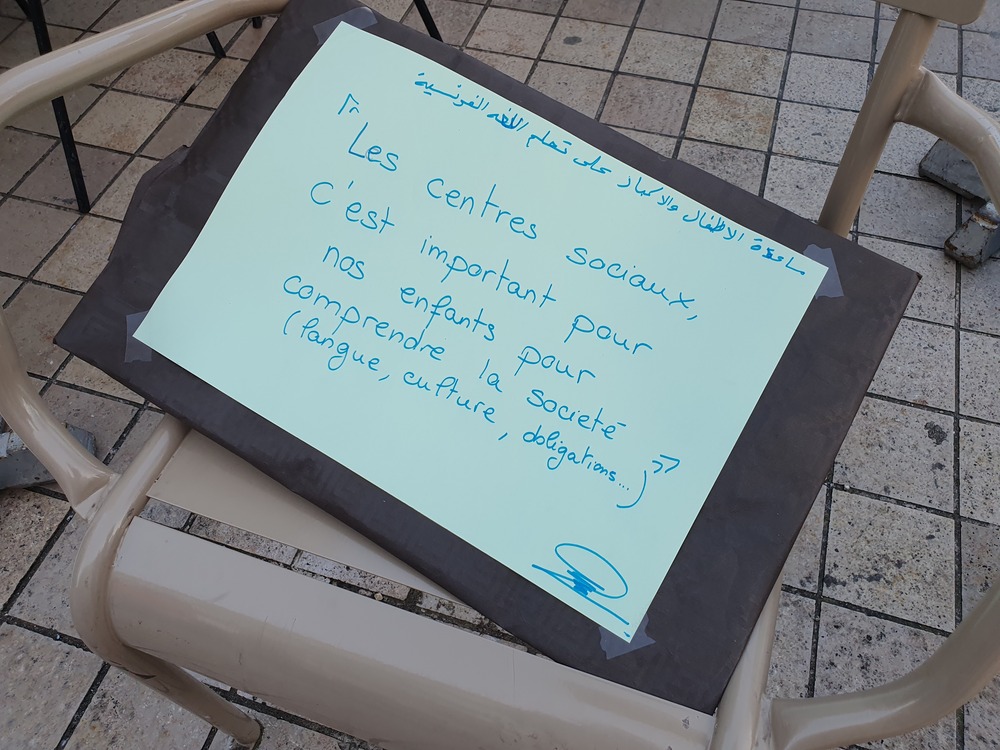 مساعدة الاطفال والكبار على تعلم اللغه الفرنسية
« Les centres sociaux,
C'est important pour
nos enfants pour
comprendre la societé
(langue, culture, obligations...) »